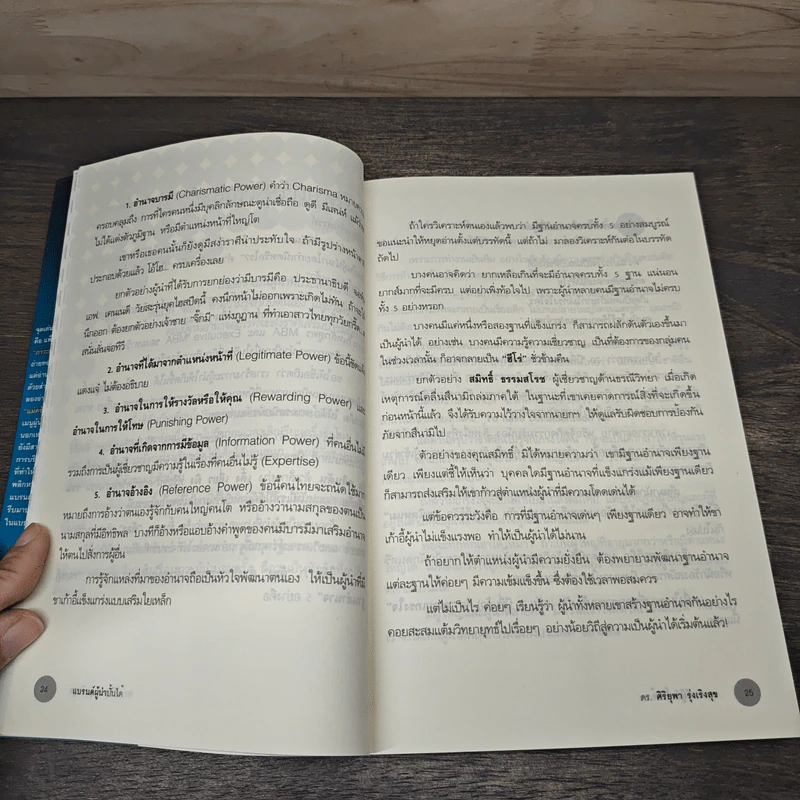 1. อำนาจบารมี (Charismatic Power) คำว่า Charisma หมาย
ครอบคลุมถึง การที่ใครคนหนึ่งมีบุคลิกลักษณะดูน่าเชื่อถือ ดูดี มีเสน่ห์ แม้ว่า
ไม่ได้แต่งตัวภูมิฐาน หรือมีตำแหน่งหน้าที่ใหญ่โต
เขาหรือเธอคนนั้นก็ยังดูมีสง่าราศีน่าประทับใจ ถ้ามีรูปร่างหน้าตา
ประกอบด้วยแล้ว โอ้โฮ... ครบเครื่องเลย
ยกตัวอย่างผู้นำที่ได้รับการยกย่องว่ามีบารมีคือ ประธานาธิบดี จอห์น
เอฟ. เคนเนดี วัยสะรุ่นยุคไฮสปีดนี้ คงนึกหน้าไม่ออกเพราะเกิดไม่ทัน ถ้า
นึกออก ต้องยกตัวอย่างเจ้าชาย “จิ๊กมี” แห่งภูฏาน ที่ทำเอาสาวไทยทุกวัยกรี๊ด
สนั่นลั่นจอทีวี
2. อำนาจที่ได้มาจากตำแหน่งหน้าที่ (Legitimate Power) ข้อนี้ชัดเจน
แดงแจ๋ ไม่ต้องอธิบาย
3. อำนาจในการให้รางวัลหรือให้คุณ (Rewarding Power) และ
อำนาจในการให้โทษ (Punishing Power)
4. อำนาจที่เกิดจากการมีข้อมูล (Information Power) ที่คนอื่นไม่มี
รวมถึงการเป็นผู้เชี่ยวชาญมีความรู้ในเรื่องที่คนอื่นไม่รู้ (Expertise)
5. อำนาจอ้างอิง (Reference Power) ข้อนี้คนไทยจะถนัดใช้มาก
หมายถึงการอ้างว่าตนเองรู้จักกับคนใหญ่คนโต หรืออ้างว่านามสกุลของตนเป็น
นามสกุลที่มีอิทธิพล บางทีก็อ้างหรือแอบอ้างคำพูดของคนมีบารมีมาเสริมอำนาจ
ให้ตนไปสั่งการผู้อื่น
การรู้จักแหล่งที่มาของอำนาจถือเป็นหัวใจพัฒนาตนเอง ให้เป็นผู้นำที่มี
ขาเก้าอี้แข็งแกร่งแบบเสริมใยเหล็ก
24 แบรนด์ผู้นำปั้นได้
ถ้าใครวิเคราะห์ตนเองแล้วพบว่า มีฐานอำนาจครบทั้ง 5 อย่างสมบูรณ์
ขอแนะนำให้หยุดอ่านตั้งแต่บรรทัดนี้ แต่ถ้าไม่ มาลองวิเคราะห์กันต่อในบรรทัด
ถัดไป
บางคนอาจคิดว่า ยากเหลือเกินที่จะมีอำนาจครบทั้ง 5 ฐาน แน่นอน
ยากส์มากที่จะมีครบ แต่อย่าเพิ่งท้อใจไป เพราะผู้นำหลายคนมีฐานอำนาจไม่ครบ
ทั้ง 5 อย่างหรอก
บางคนมีแค่หนึ่งหรือสองฐานที่แข็งแกร่ง ก็สามารถผลักดันตัวเองขึ้นมา
เป็นผู้นำได้ อย่างเช่น บางคนมีความรู้ความเชี่ยวชาญ เป็นที่ต้องการของกลุ่มคน
ในช่วงเวลานั้น ก็อาจกลายเป็น “ฮีโร่” ชั่วข้ามคืน
ยกตัวอย่าง สมิทธิ์ ธรรมสโรช ผู้เชี่ยวชาญด้านธรณีวิทยา เมื่อเกิด
เหตุการณ์คลื่นสึนามิถล่มภาคใต้ ในฐานะที่เขาเคยคาดการณ์สิ่งที่จะเกิดขึ้น
ก่อนหน้านี้แล้ว จึงได้รับความไว้วางใจจากนายกฯ ให้ดูแลรับผิดชอบการป้องกัน
ภัยจากสึนามิไป
ตัวอย่างของคุณสมิทธิ์ มิได้หมายความว่า เขามีฐานอำนาจเพียงฐาน
เดียว เพียงแต่ชี้ให้เห็นว่า บุคคลใดมีฐานอำนาจที่แข็งแกร่งแม้เพียงฐานเดียว
ก็สามารถส่งเสริมให้เขาก้าวสู่ตำแหน่งผู้นำที่มีความโดดเด่นได้
แต่ข้อควรระวังคือ การที่มีฐานอำนาจเด่นๆ เพียงฐานเดียว อาจทำให้ขา
เก้าอี้ผู้นำไม่แข็งแรงพอ ทำให้เป็นผู้นำได้ไม่นาน
ถ้าอยากให้ตำแหน่งผู้นำมีความยั่งยืน ต้องพยายามพัฒนาฐานอำนาจ
แต่ละฐานให้ค่อยๆ มีความเข้มแข็งขึ้น ซึ่งต้องใช้เวลาพอสมควร
แต่ไม่เป็นไร ค่อยๆ เรียนรู้ว่า ผู้นำทั้งหลายเขาสร้างฐานอำนาจกันอย่างไร
คอยสะสมแต้มวิทยายุทธ์ไปเรื่อยๆ อย่างน้อยวิถีสู่ความเป็นผู้นำได้เริ่มต้นแล้ว!
ดร. ศิริยุพา รุ่งเริงสุข 25